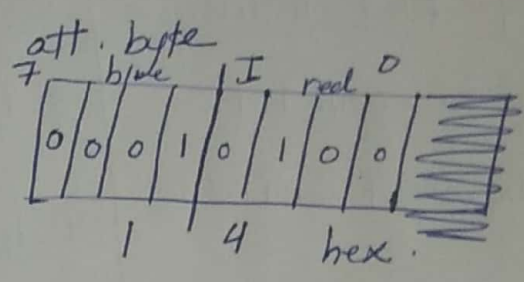 att. byte
7 blue I red 0
0 0 0 1 0 1 0 0
1 4 hex.